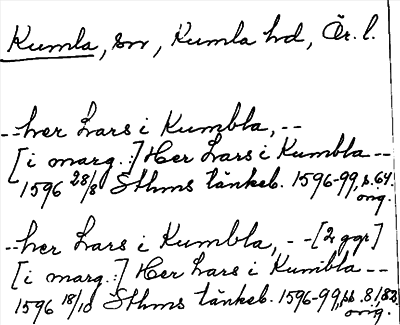 Kumla, sn, Kumla hd, Ör. l.
--her Lars i Kumbla, --
[i marg.:] Her Lars i Kumbla --
1596 28/8 Sthms tänkeb. 1596-99, s. 64.
orig.
--her Lars i Kumbla, - -[2 ggr]
[i marg.:] Her Lars i Kumbla --
1596 18/10 Sthms tänkeb. 1596-99,
orig.